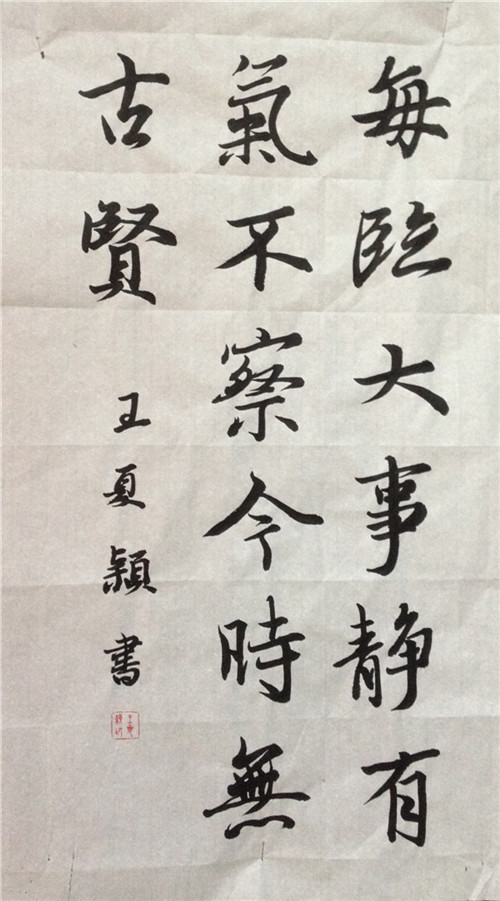 每臨大事静有
氣不察今時無
古賢
王夏颖書